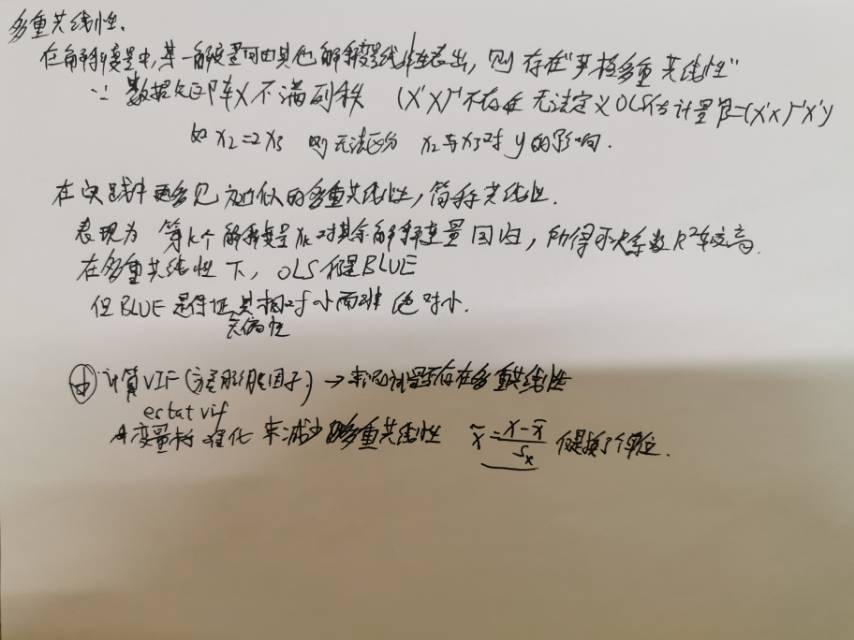 多重共线性.
在解释变量中,某一解释变量可由其他解释变量线性表出,则存在"严格多重共线性"
∵ 数据矩阵X不满列秩 (X'X)⁻¹不存在 无法定义OLS估计量β̂=(X'X)⁻¹X'y
如 x₂=2x₃ 则无法区分 x₂与x₃对y的影响.
在实践中更多见为近似的多重共线性,简称共线性.
表现为 第k个解释变量xₖ对其余解释变量回归,所得可决系数R²较高.
在多重共线性下,OLS仍是BLUE
但BLUE是保证其相对小而非绝对小.
无偏性
计算VIF(方差膨胀因子)→来测试是否存在多重共线性
estat vif
用变量标准化来减少多重共线性 x̃=(x-x̄)/Sₓ 但是换了个单位.